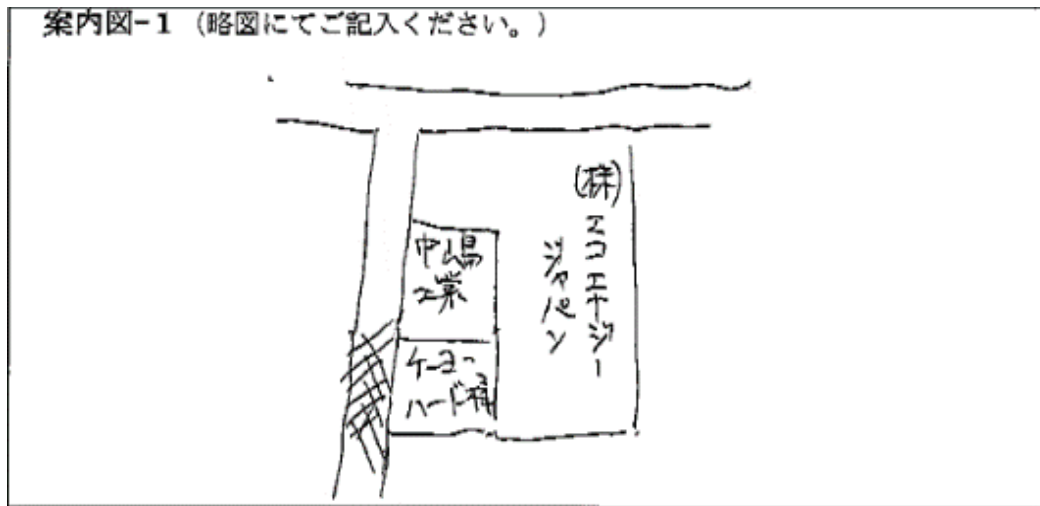 案内図-1 (略図にてご記入ください。)
(株)エコエナジー
ジャパン
中嶋
工業
ケーヨー
ハード㈱